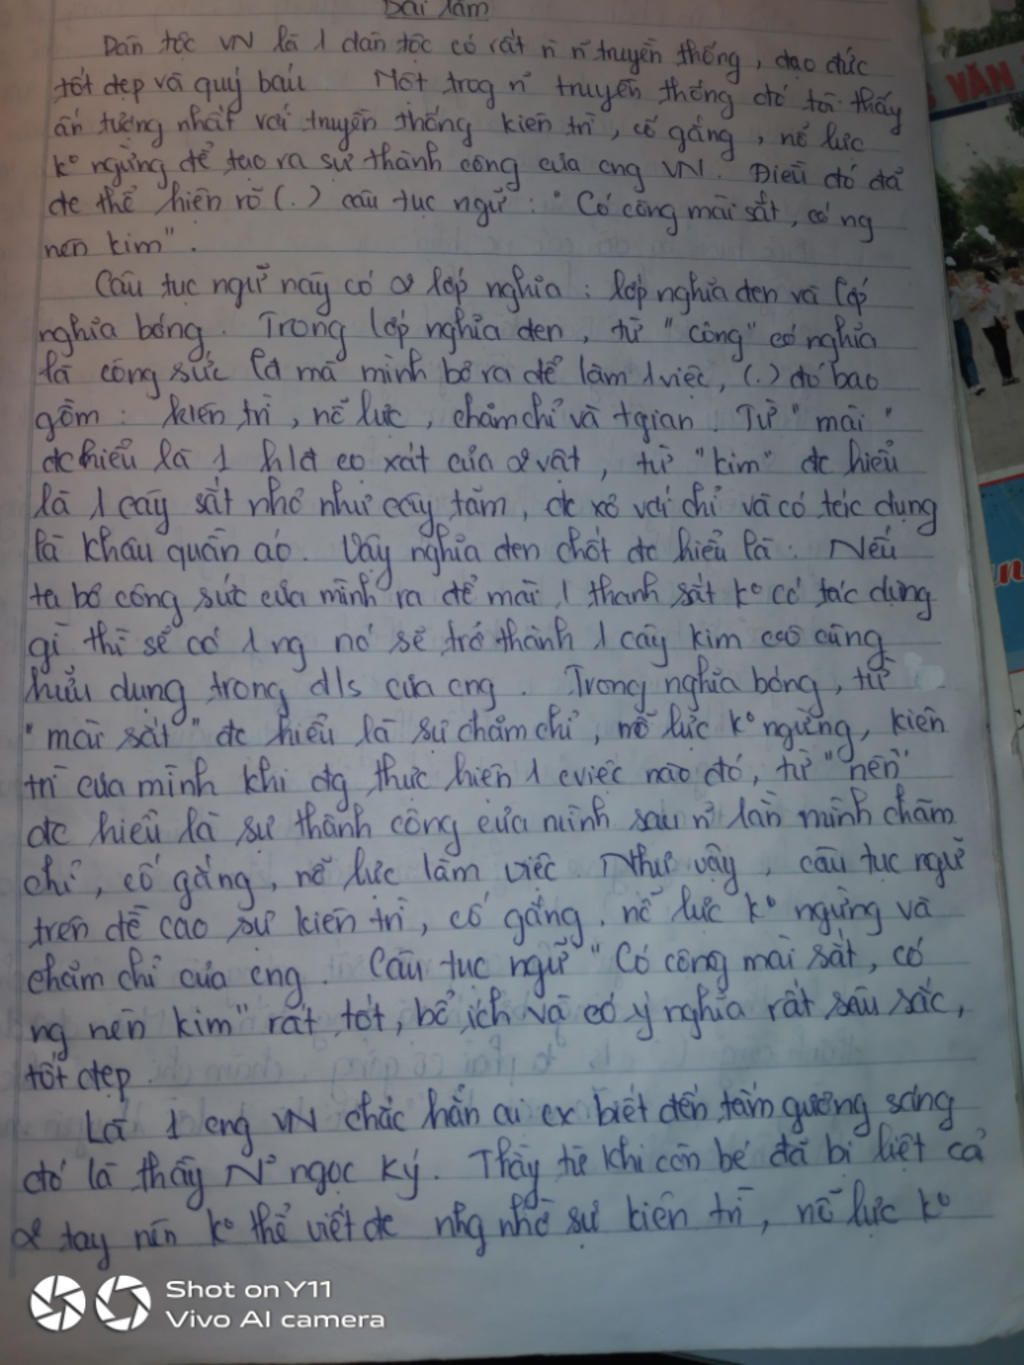 Bài làm
Dân tộc VN là 1 dân tộc có rất n' n~ truyền thống, đạo đức
tốt đẹp và quý báu Một trog n~ truyền thống đó tôi thấy
ấn tượng nhất với truyền thống kiên trì, cố gắng, nỗ lực
k° ngừng để tạo ra sự thành công của cng VN. Điều đó đã
đc thể hiện rõ (.) câu tục ngữ: "Có công mài sắt, có ng
nên kim".
Câu tục ngữ này có 2 lớp nghĩa: lớp nghĩa đen và lớp
nghĩa bóng. Trong lớp nghĩa đen, từ "công" có nghĩa
là công sức lđ mà mình bỏ ra để làm 1 việc, (.) đó bao
gồm: kiên trì, nỗ lực, chăm chỉ và tgian. Từ "mài"
đc hiểu là 1 hđ cọ xát của 2 vật, từ "kim" đc hiểu
là 1 cây sắt nhỏ như cây tăm, đc xỏ với chỉ và có tác dụng
là khâu quần áo. Vậy nghĩa đen chốt đc hiểu là: Nếu
ta bỏ công sức của mình ra để mài 1 thanh sắt k° có tác dụng
gì thì sẽ có 1 ng nó sẽ trở thành 1 cây kim vô cùng
hữu dụng trong đ/s của cng. Trong nghĩa bóng, từ
"mài sắt" đc hiểu là sự chăm chỉ, nỗ lực k° ngừng, kiên
trì của mình khi đg thực hiện 1 cviệc nào đó, từ "nên"
đc hiểu là sự thành công của mình sau n' lần mình chăm
chỉ, cố gắng, nỗ lực làm việc Như vậy, câu tục ngữ
trên đề cao sự kiên trì, cố gắng, nỗ lực k° ngừng và
chăm chỉ của cng. Câu tục ngữ "Có công mài sắt, có
ng nên kim" rất tốt, bổ ích và có ý nghĩa rất sâu sắc,
tốt đẹp.
Là 1 cng VN chắc hẳn ai cx biết đến tấm gương sáng
đó là thầy N° ngọc Ký. Thầy từ khi còn bé đã bị liệt cả
2 tay nên k° thể viết đc nhg nhờ sự kiên trì, nỗ lực k°
VĂN
Shot on Y11
Vivo AI camera